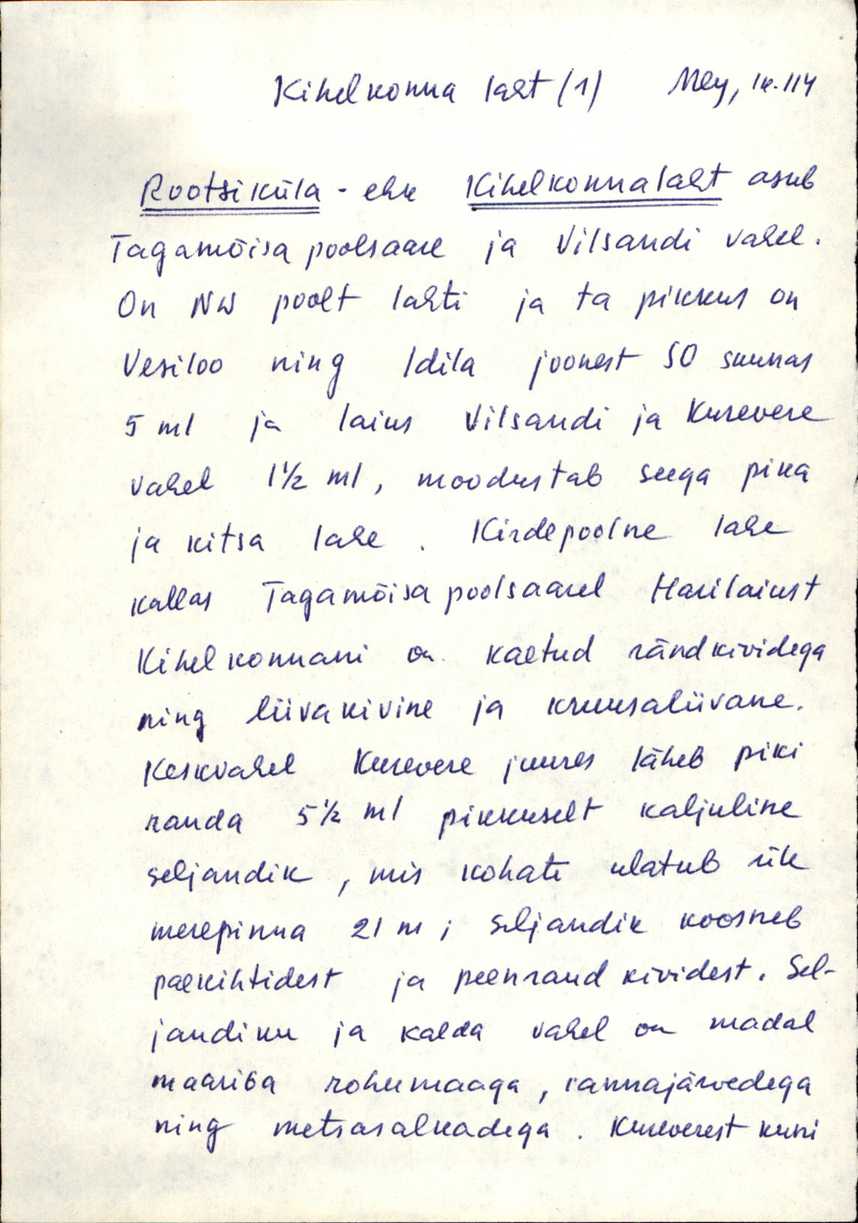 Kihelkonna laht (1) Mey, lk. 114
Rootsiküla - ehk Kihelkonnalaht asub
Tagamõisa poolsaare ja Vilsandi vahel.
On NW poolt lahti ja ta pikkus on
Vesiloo ning Idila joonest SO suunas
5 ml ja laius Vilsandi ja Kurevere
vahel 1½ ml, moodustab seega pika
ja kitsa lahe. Kirdepoolne lahe
kallas Tagamõisa poolsaarel Harilaiust
Kihelkonnani on kaetud rändkividega
ning liivakivine ja kruusaliivane.
Keskvahel Kurevere juures läheb piki
randa 5½ ml pikkuselt kaljuline
seljandik, mis kohati ulatub üle
merepinna 21 m; seljandik koosneb
paekihtidest ja peenrand kividest. Sel-
jandiku ja kalda vahel on madal
maariba rohumaaga, rannajärvedega
ning metsasalkadega. Kureverest kuni